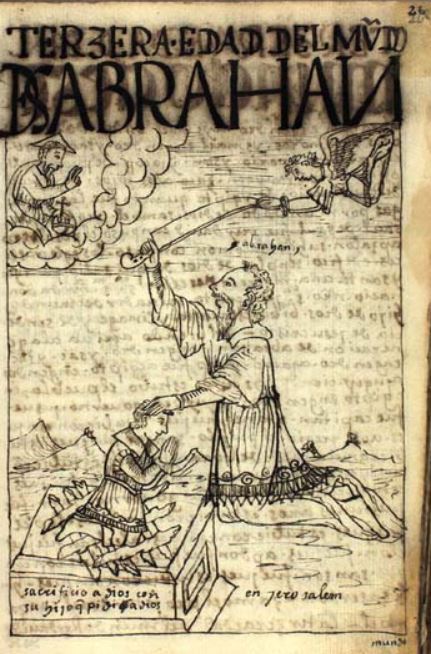 TERZERA·EDAD·DEL MV̄DO
DESABRAHAN
abrahan
sacrificio a dios con
su hijo q̄ pidio dios
en jerusalem
mundo